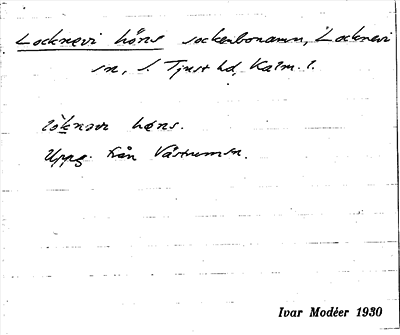 Locknevi höns sockenbonamn, Locknevi
sn, S. Tjust hd, Kalm. l.
löknəvi høns.
Uppg. från Västrum sn.
Ivar Modéer 1930